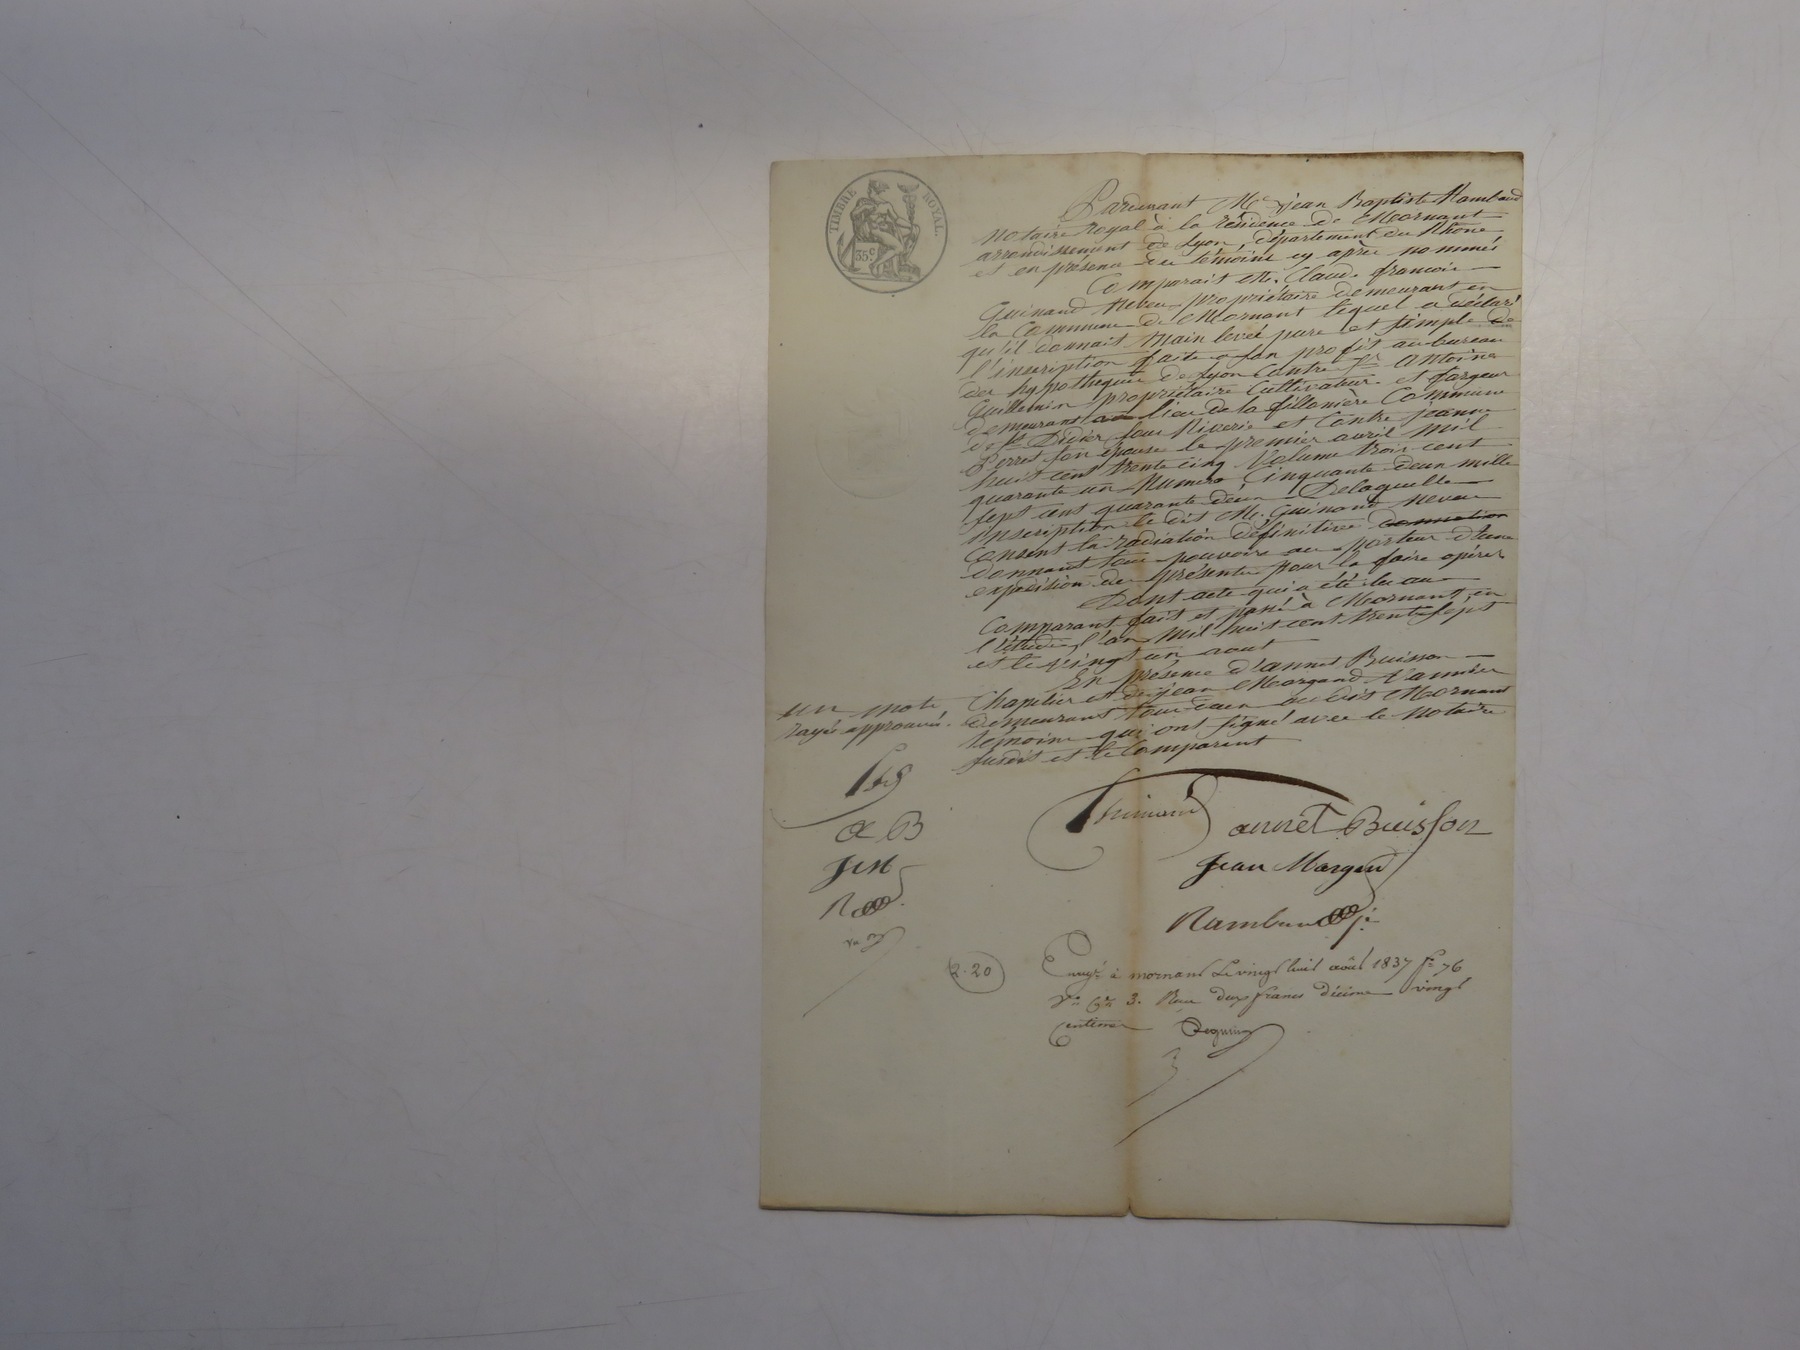 TIMBRE ROYAL.
35 c.
Pardevant Me jean Baptiste Rambaud
Notaire Royal à la résidence de Mornant
arrondissement de Lyon, département du Rhône
et en présence des témoins cy après nommés
Comparait Mr. Claude françois
Guinand Neveu propriétaire demeurant en
la Commune de Mornant lequel a déclaré
qu'il donnait Main levée pure et simple de
l'inscription faite a son profit au bureau
des hypothèques de Lyon Contre Sr antoine
Guillemin propriétaire Cultivateur et
demeurant au lieu de la fillonière Commune
de St Didier sous Riverie et Contre jeanne
Perret son épouse le premier avril mil
huit cent trente cinq Volume trois cent
quarante un Numéro Cinquante deux mille
sept cent quarante deux Delaquelle
inscription le dit M. Guinand neveu
Consent la radiation définitive
donnant tous pouvoirs au porteur d'une
expédition des présentes pour la faire opérer
Dont acte qui a été lu au
Comparant fait et passé à Mornant en
l'étude l'an mil huit cent trente sept
et le vingt un aout
En présence d'annet Buisson
Chapelier et de jean Margand Vannier
demeurant tous deux au dit Mornant
témoins qui ont signé avec le Notaire
susdit et le Comparant
un mot
rayé approuvé.
a B
JM
R
Guinand
annet Buisson
Jean Margand
Rambaud
2.20
Enregé à mornant Le vingt huit août 1837 fo 76
Vo Ce 3. Reçu deux francs décime vingt
Centimes